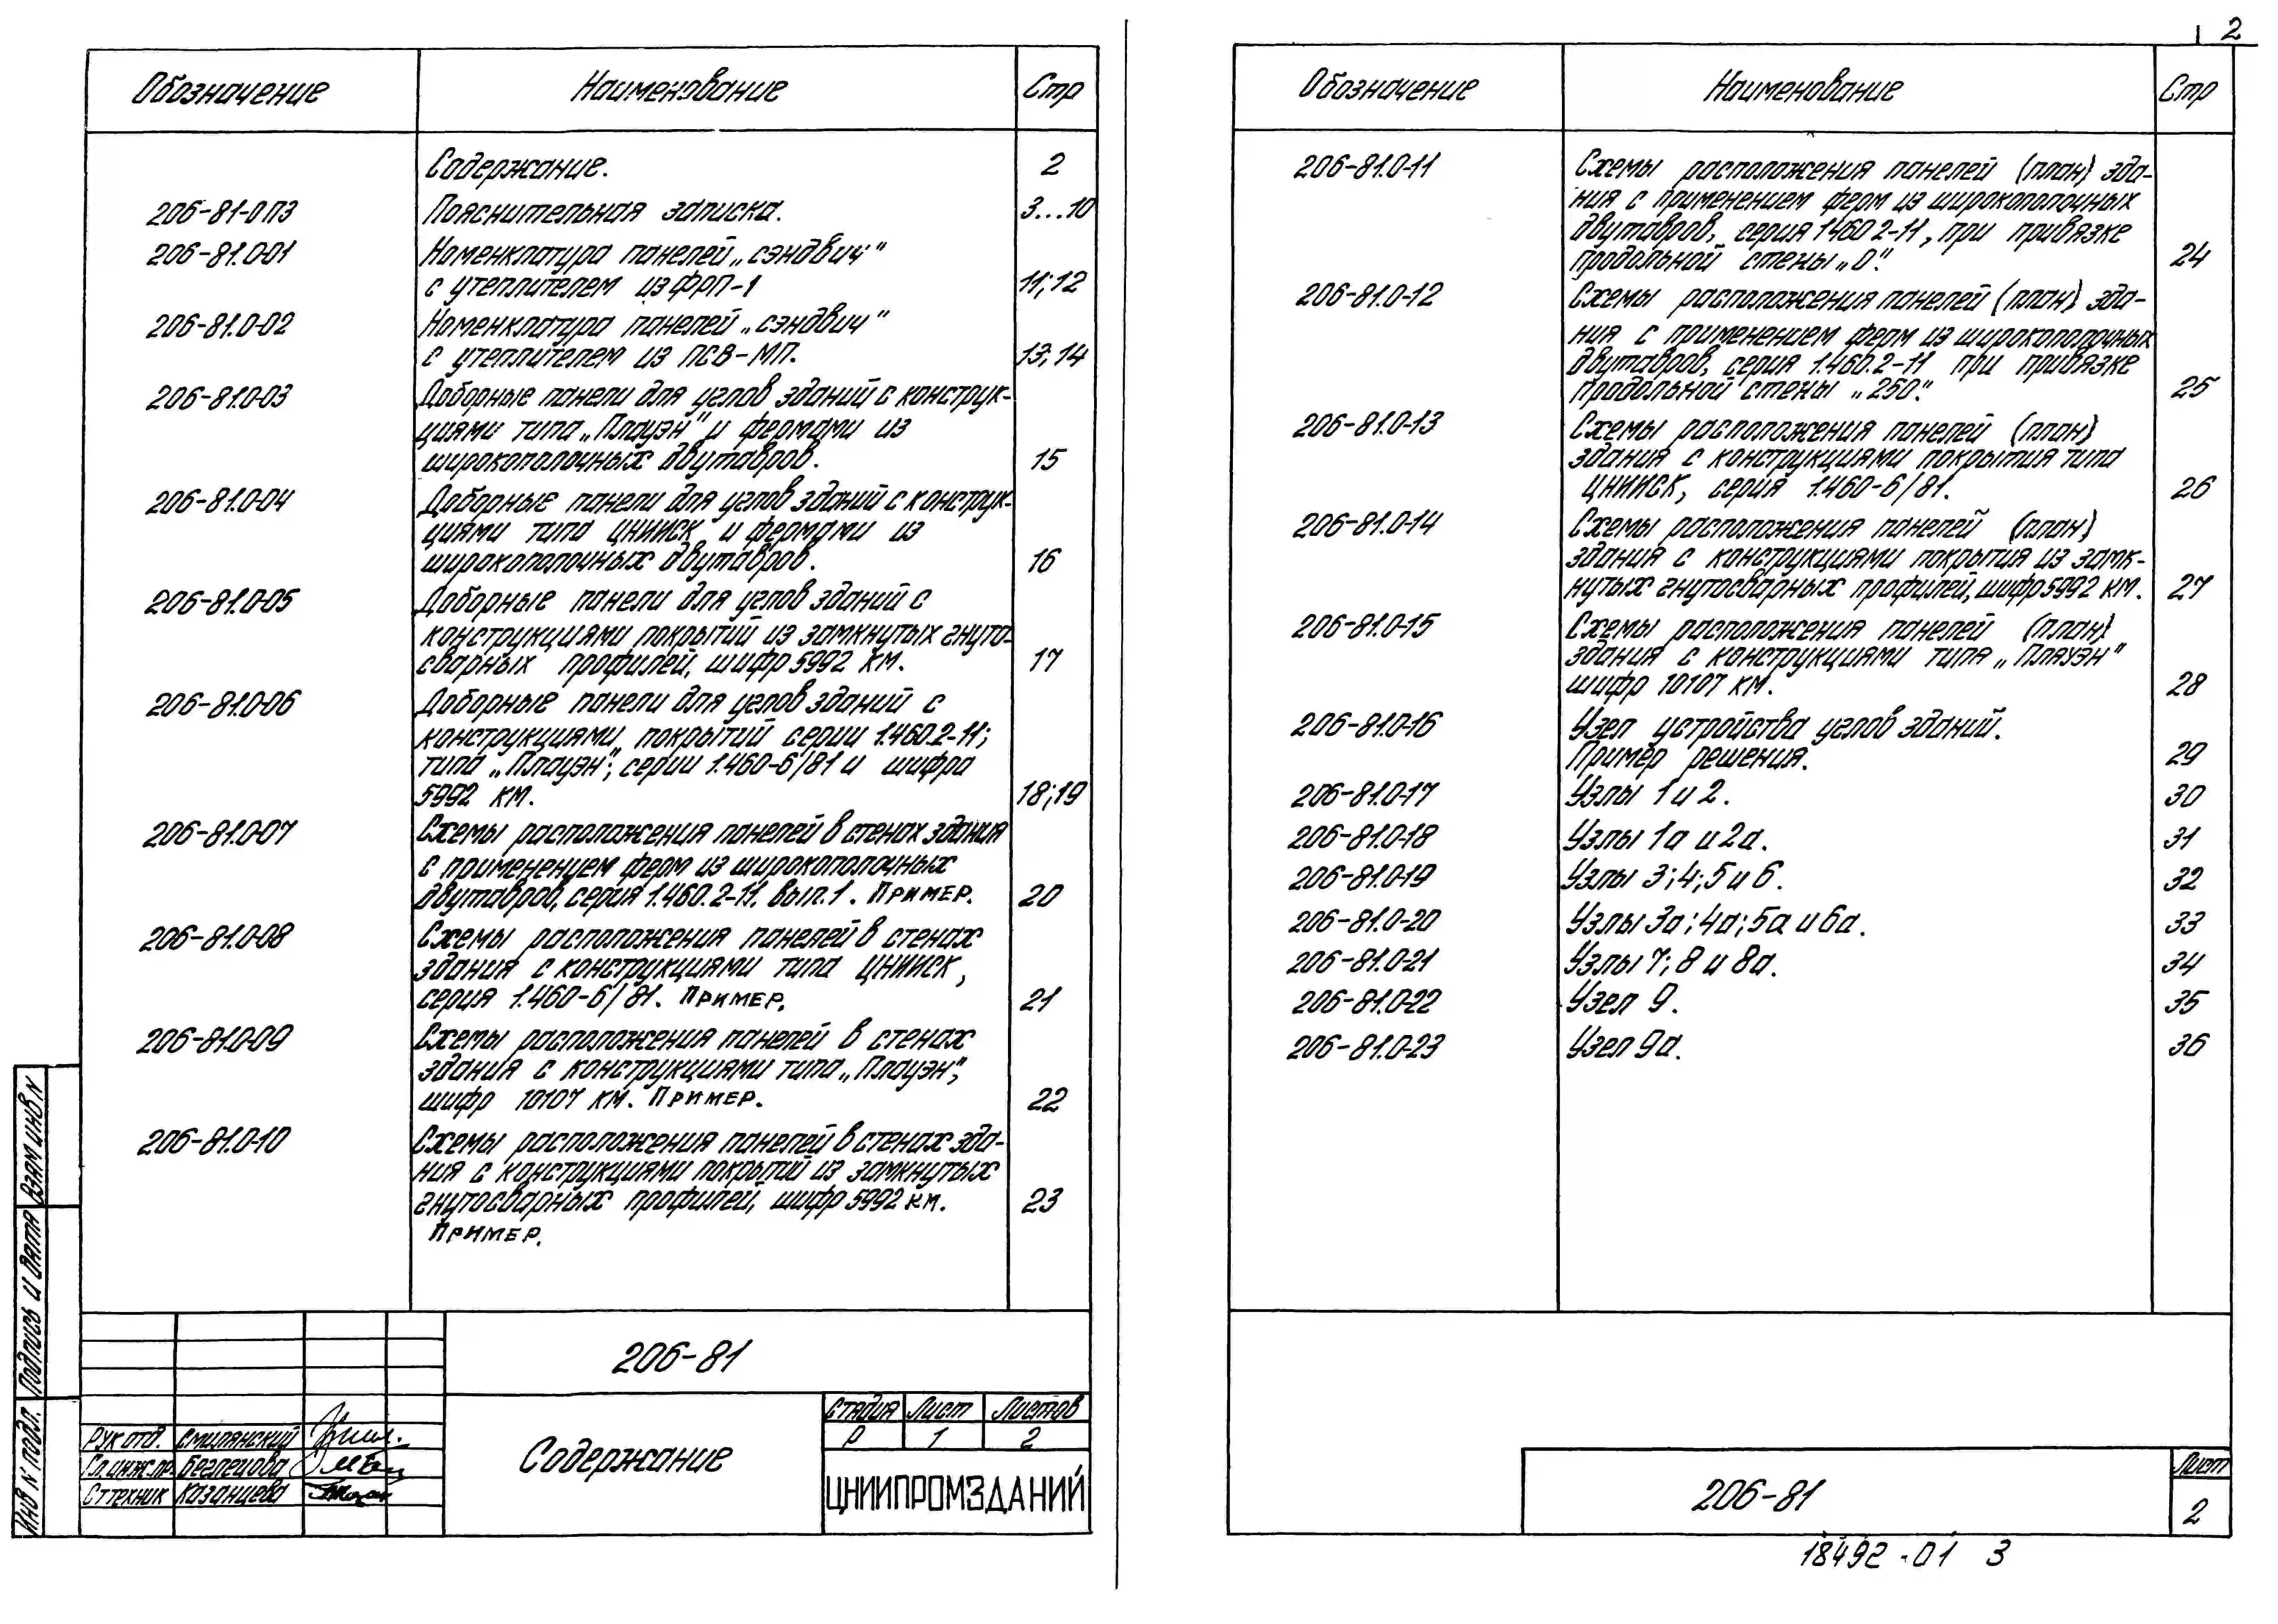 2
Обозначение Наименование Стр
Содержание. 2
206-81-0 ПЗ Пояснительная записка. 3...10
206-81.0-01 Номенклатура панелей „сэндвич"
с утеплителем из ФРП-1 11;12
206-81.0-02 Номенклатура панелей „сэндвич"
с утеплителем из ПСВ-МП. 13;14
206-81.0-03 Доборные панели для углов зданий с конструк-
циями типа „Плауэн" и фермами из
широкополочных двутавров. 15
206-81.0-04 Доборные панели для углов зданий с конструк-
циями типа ЦНИИСК и фермами из
широкополочных двутавров. 16
206-81.0-05 Доборные панели для углов зданий с
конструкциями покрытий из замкнутых гнуто-
сварных профилей, шифр 5992 КМ. 17
206-81.0-06 Доборные панели для углов зданий с
конструкциями покрытий серии 1.460.2-11;
типа „Плауэн"; серии 1.460-6/81 и шифра
5992 КМ. 18;19
206-81.0-07 Схемы расположения панелей в стенах здания
с применением ферм из широкополочных
двутавров, серия 1.460.2-11. вып.1. Пример. 20
206-81.0-08 Схемы расположения панелей в стенах
здания с конструкциями типа ЦНИИСК,
серия 1.460-6/81. Пример. 21
206-81.0-09 Схемы расположения панелей в стенах
здания с конструкциями типа „Плауэн",
шифр 10107 КМ. Пример. 22
206-81.0-10 Схемы расположения панелей в стенах зда-
ния с конструкциями покрытий из замкнутых
гнутосварных профилей, шифр 5992 км. 23
Пример.
206-81
Стадия Лист Листов
Р 1 2
Рук отд. Смилянский
Гл.инж.пр. Беглецова
Ст техник Казанцева
Содержание
ЦНИИПРОМЗДАНИЙ
Взам инв N
Подпись и дата
Инв N подл.
Обозначение Наименование Стр
206-81.0-11 Схемы расположения панелей (план) зда-
ния с применением ферм из широкополочных
двутавров, серия 1460 2-11, при привязке
продольной стены „0". 24
206-81.0-12 Схемы расположения панелей (план) зда-
ния с применением ферм из широкополочных
двутавров, серия 1.460.2-11 при привязке
продольной стены „250". 25
206-81.0-13 Схемы расположения панелей (план)
здания с конструкциями покрытия типа
ЦНИИСК, серия 1.460-6/81. 26
206-81.0-14 Схемы расположения панелей (план)
здания с конструкциями покрытия из замк-
нутых гнутосварных профилей, шифр 5992 КМ. 27
206-81.0-15 Схемы расположения панелей (план)
здания с конструкциями типа „Плауэн"
шифр 10107 КМ. 28
206-81.0-16 Узел устройства углов зданий.
Пример решения. 29
206-81.0-17 Узлы 1 и 2. 30
206-81.0-18 Узлы 1а и 2а. 31
206-81.0-19 Узлы 3;4;5 и 6. 32
206-81.0-20 Узлы 3а;4а;5а и 6а. 33
206-81.0-21 Узлы 7;8 и 8а. 34
206-81.0-22 Узел 9. 35
206-81.0-23 Узел 9а. 36
206-81
Лист
2
18492-01 3